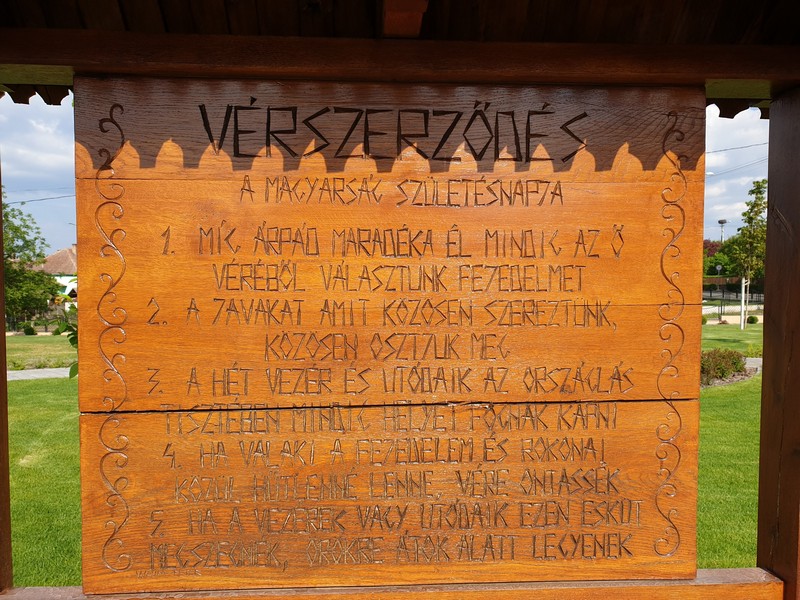 VÉRSZERZŐDÉS
A MAGYARSÁG SZÜLETÉSNAPJA
1. MÍG ÁRPÁD MARADÉKA ÉL MINDIG AZ Ő
VÉRÉBŐL VÁLASZTUNK FEJEDELMET
2. A JAVAKAT AMIT KÖZÖSEN SZEREZTÜNK,
KÖZÖSEN OSZTJUK MEG
3. A HÉT VEZÉR ÉS UTÓDAIK AZ ORSZÁGLÁS
TISZTÉBEN MINDIG HELYET FOGNAK KAPNI
4. HA VALAKI A FEJEDELEM ÉS ROKONAI
KÖZÜL HŰTLENNÉ LENNE, VÉRE ONTASSÉK
5. HA A VEZÉREK VAGY UTÓDAIK EZEN ESKÜT
MEGSZEGNÉK, ÖRÖKRE ÁTOK ALATT LEGYENEK